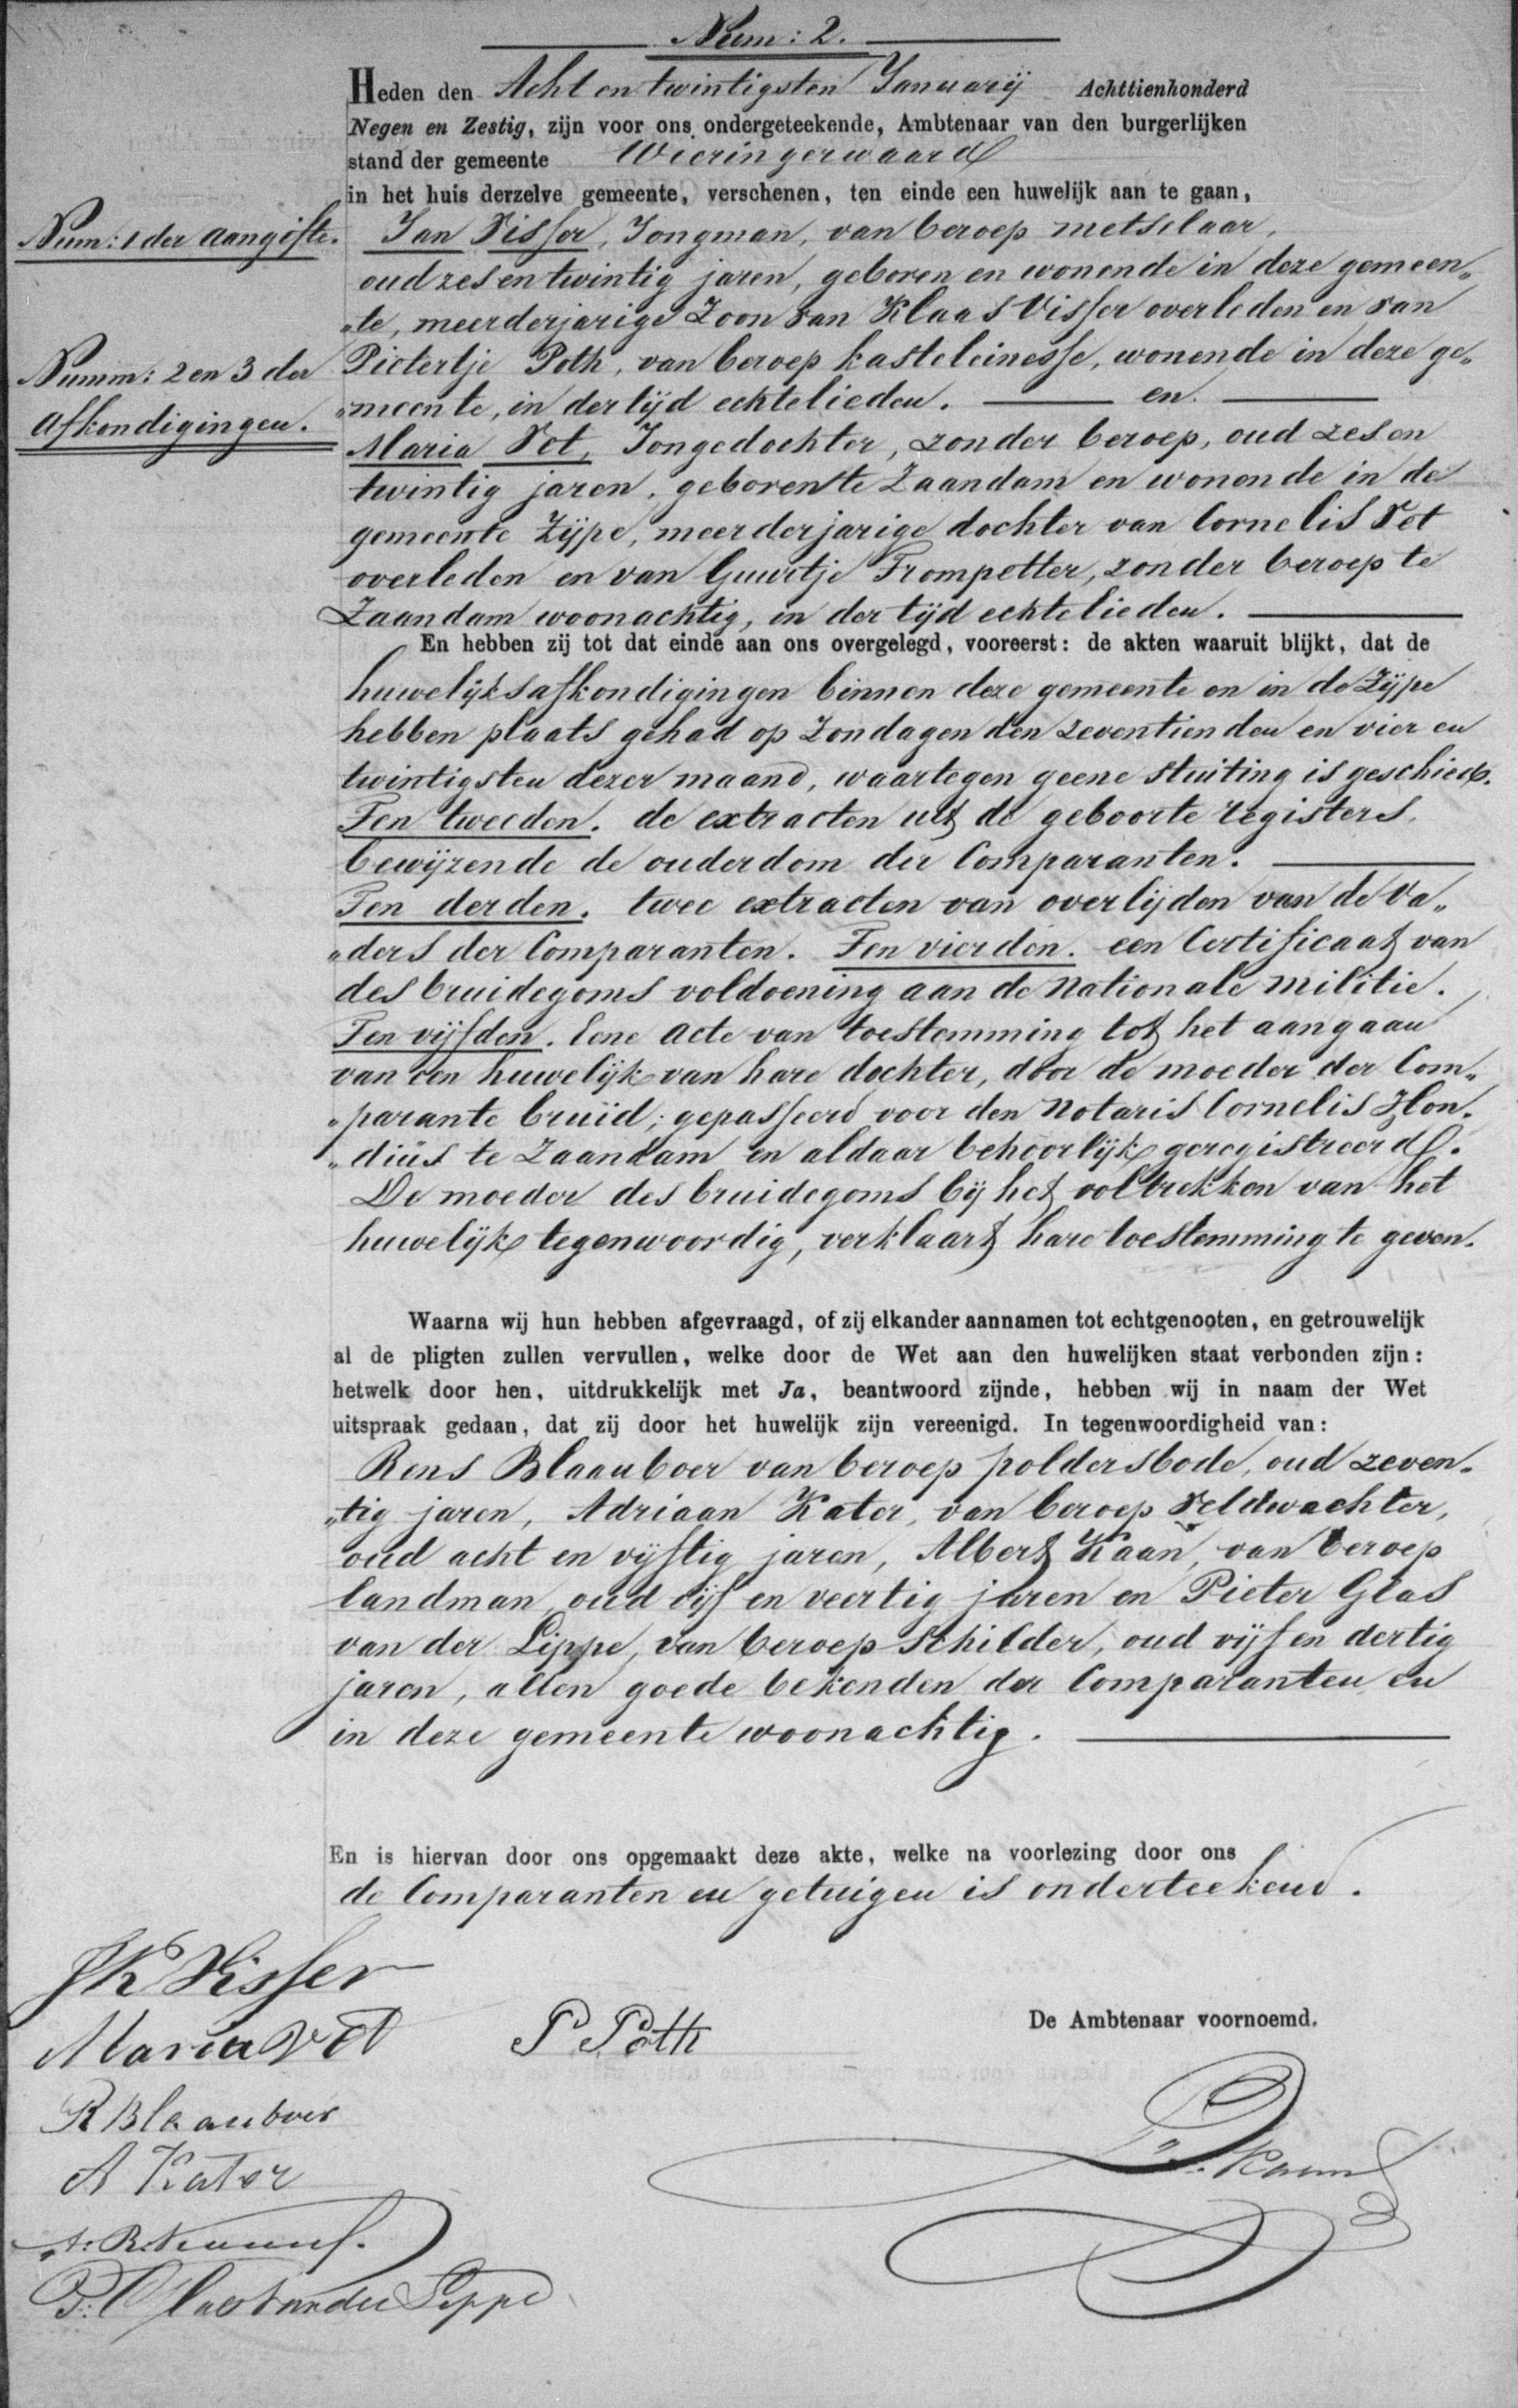 Num: 2.
Heden den Acht en twintigsten Januarij Achttienhonderd
Negen en Zestig, zijn voor ons ondergeteekende, Ambtenaar van den burgerlijken
stand der gemeente Wieringerwaard
in het huis derzelve gemeente, verschenen, ten einde een huwelijk aan te gaan,
Num: 1 der aangifte.
Jan Visser, Jongman, van beroep metselaar,
oud zes en twintig jaren, geboren en wonende in deze gemeen„
„te, meerderjarige Zoon van Klaas Visser overleden en van
Numm: 2 en 3 der
afkondigingen.
Pietertje Poth, van beroep kasteleinesse, wonende in deze ge„
„meente, in der tijd echtelieden. en.
Maria Vet, Jongedochter, zonder beroep, oud zes en
twintig jaren, geboren te Zaandam en wonende in de
gemeente Zijpe, meerderjarige dochter van Cornelis Vet
overleden en van Guurtje Trompetter, zonder beroep te
Zaandam woonachtig, in der tijd echtelieden.
En hebben zij tot dat einde aan ons overgelegd, vooreerst: de akten waaruit blijkt, dat de
huwelijksafkondigingen binnen deze gemeente en in de Zijpe
hebben plaats gehad op Zondagen den zeventienden en vier en
twintigsten dezer maand, waartegen geene stuiting is geschied.
Ten tweeden. de extracten uit de geboorte registers,
bewijzende de ouderdom der Comparanten.
Ten derden. twee extracten van overlijden van de Va„
„ders der Comparanten. Ten vierden. een Certificaat van
des bruidegoms voldoening aan de Nationale Militie.
Ten vijfden. Eene acte van toestemming tot het aangaan
van een huwelijk van hare dochter, door de moeder der Com„
„parante bruid; gepasseerd voor den Notaris Cornelis Hon„
„diüs te Zaandam en aldaar behoorlijk geregistreerd.
De moeder des bruidegoms bij het voltrekken van het
huwelijk tegenwoordig, verklaart hare toestemming te geven.
Waarna wij hun hebben afgevraagd, of zij elkander aannamen tot echtgenooten, en getrouwelijk
al de pligten zullen vervullen, welke door de Wet aan den huwelijken staat verbonden zijn:
hetwelk door hen, uitdrukkelijk met Ja, beantwoord zijnde, hebben wij in naam der Wet
uitspraak gedaan, dat zij door het huwelijk zijn vereenigd. In tegenwoordigheid van:
Rens Blaauboer van beroep poldersbode, oud zeven„
„tig jaren, Adriaan Kater, van beroep veldwachter,
oud acht en vijftig jaren, Albert Kaan, van beroep
landman, oud vijf en veertig jaren en Pieter Glas
van der Lippe, van beroep schilder, oud vijf en dertig
jaren, allen goede bekenden der Comparanten en
in deze gemeente woonachtig.
En is hiervan door ons opgemaakt deze akte, welke na voorlezing door ons
de Comparanten en getuigen is onderteekend.
JK Visser
Maria Vet
P Poth
De Ambtenaar voornoemd.
R Blaauboer
A Kater
Kaan
P: Glas van der Lippe